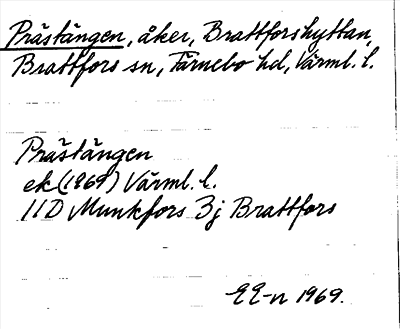 Prästängen, åker, Brattforshyttan,
Brattfors sn, Färnebo hd, Värml. l.
Prästängen
ek (1969) Värml. l.
11D Munkfors 3j Brattfors
EE-n 1969.